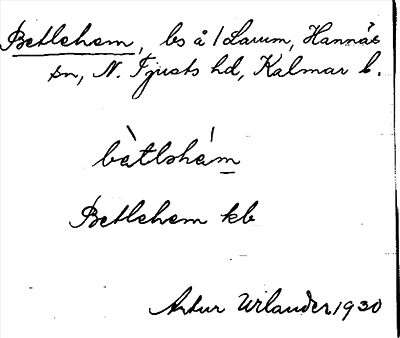 Betlehem, bs å 1 Larum, Hannäs
sn, N. Tjusts hd, Kalmar l.
bètləhém
Betlehem kb
Artur Urlander 1930